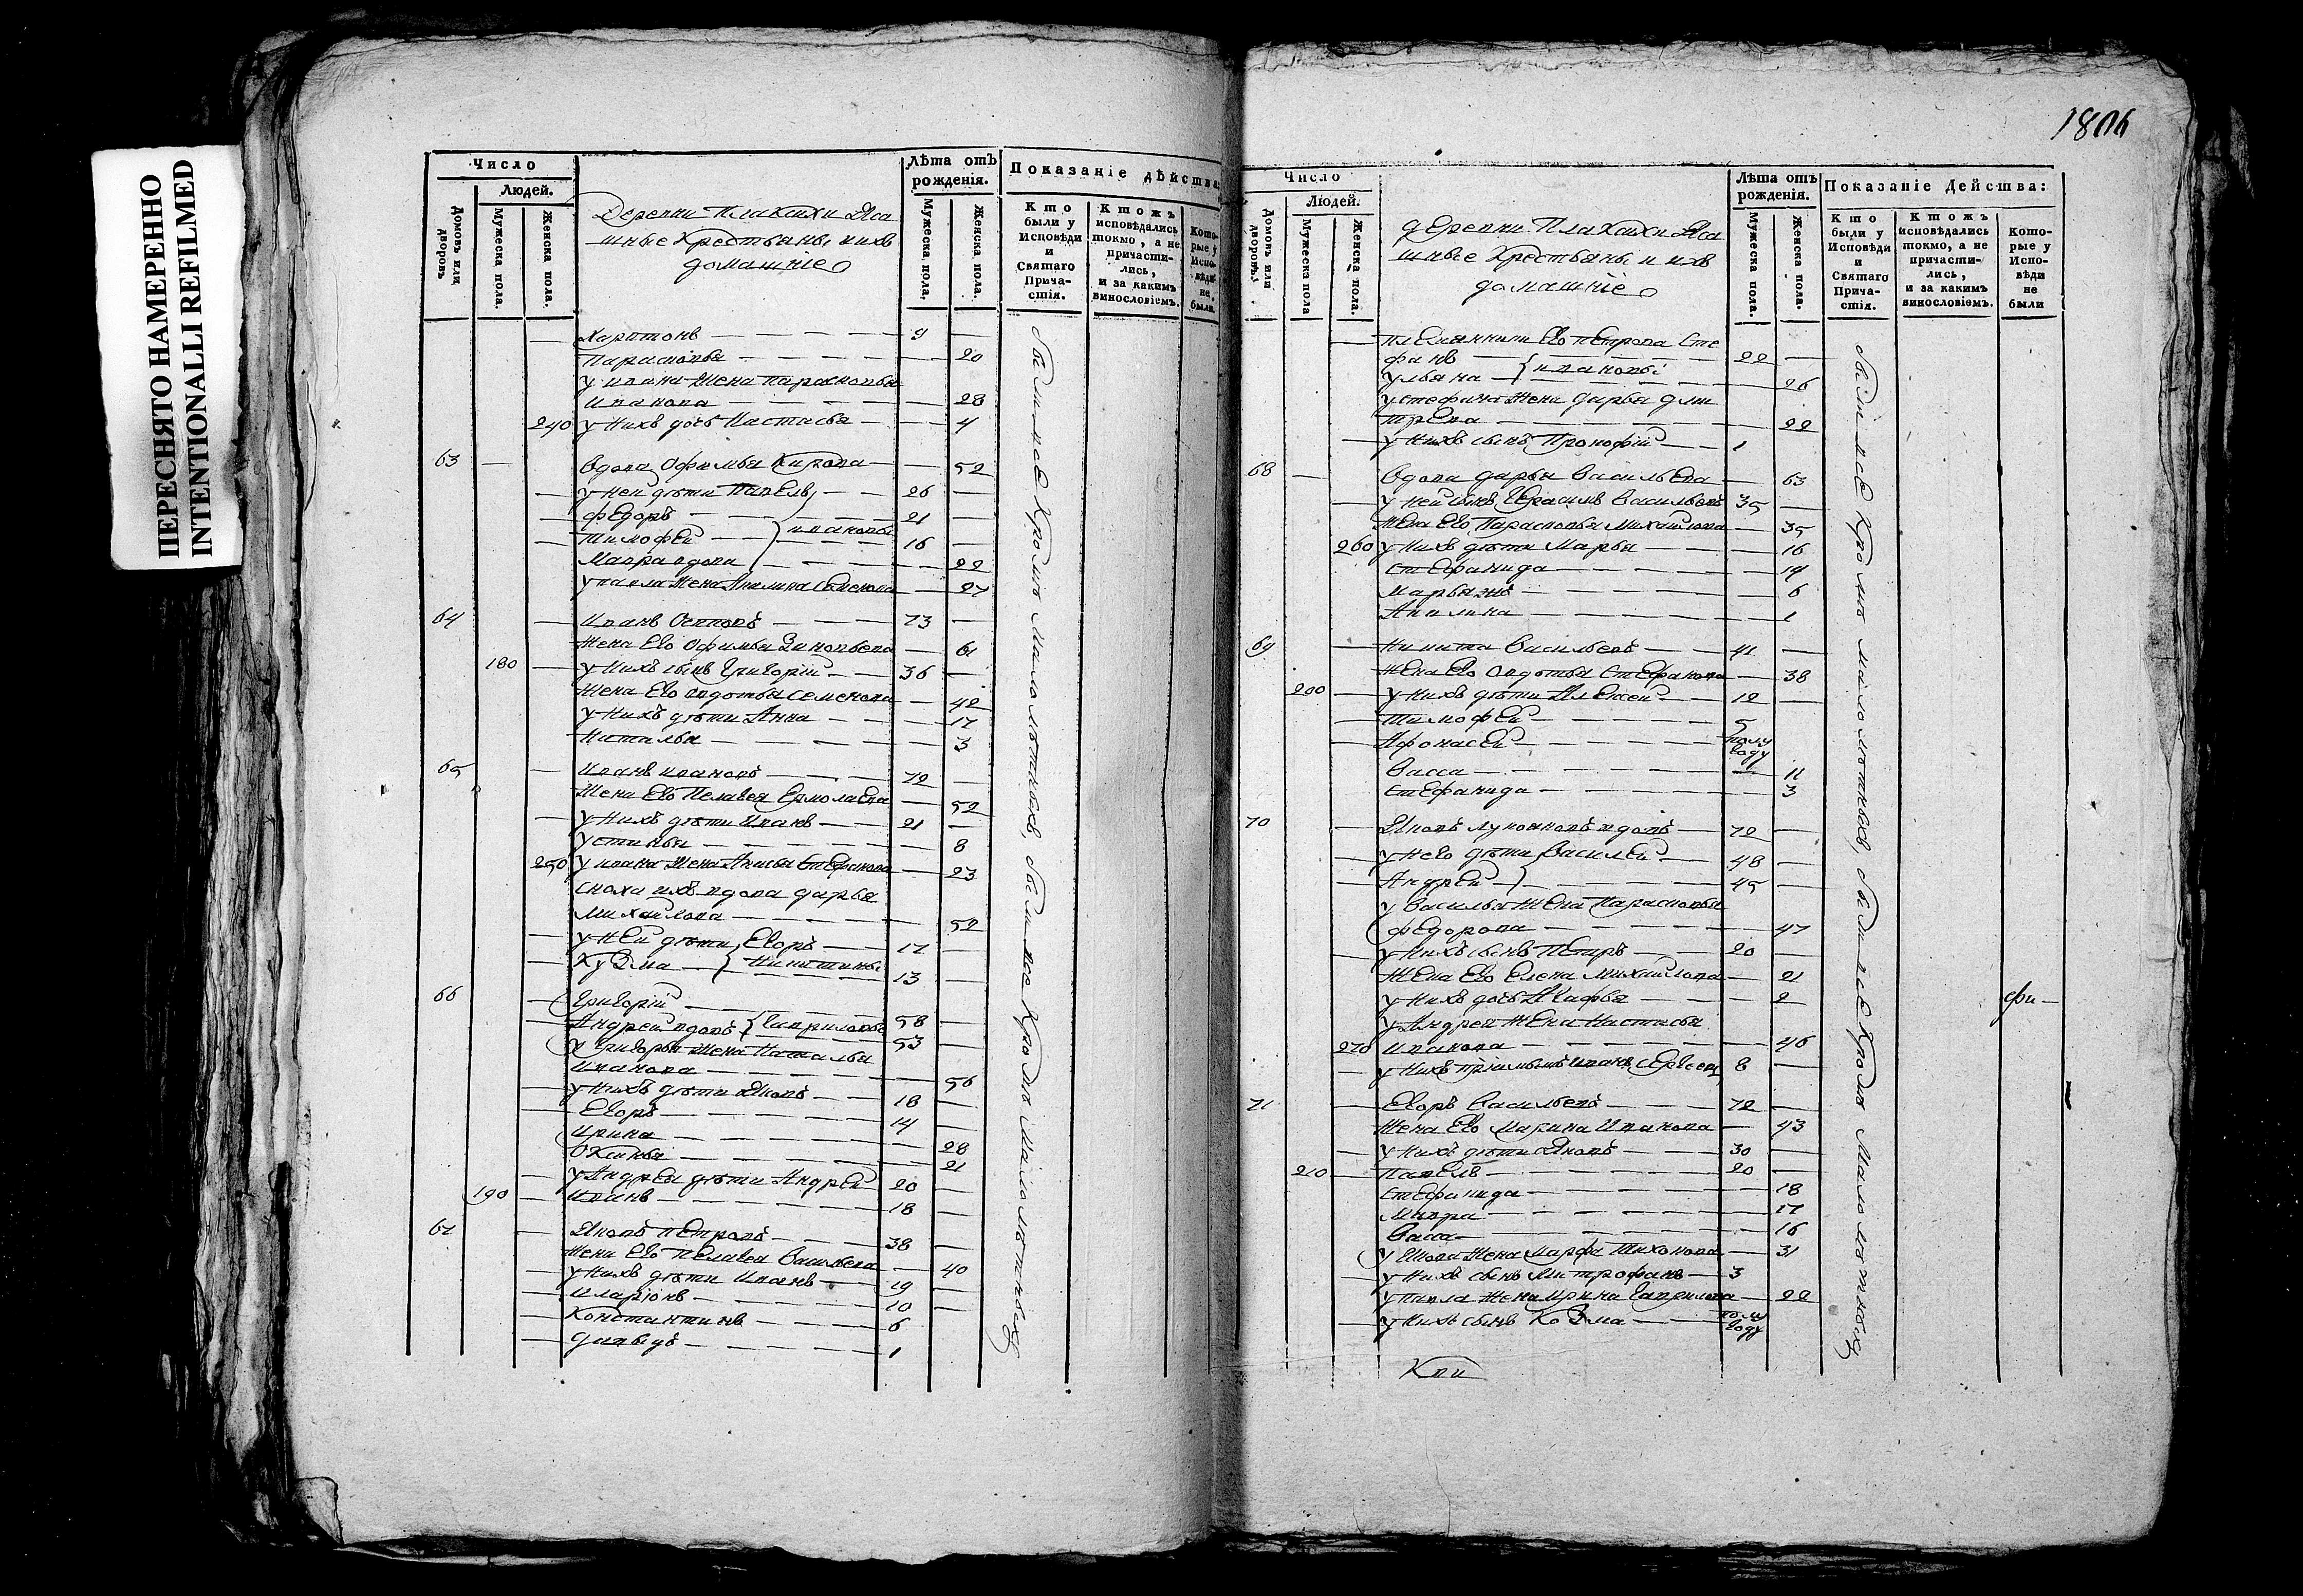 ПЕРЕСНЯТО НАМЕРЕННО
INTENTIONALLI REFILMED
Число
Людей.
Домовъ или дворовъ
Мужеска пола.
Женска пола.
Деревни Плакихи Яса
шные Крестьяны и ихъ
домашніе
Лѣта отъ рожденія.
Мужеска пола,
Женска пола.
Показаніе дѣйства
Кто были у Исповѣди и Святаго Прича-стія.
Ктожъ исповѣдались токмо, а не причасти-лись, и за какимъ винословіемъ.
Кото-рые у Испо-вѣди не были.
Харитонъ 9
Парасковья 20
у ивана жена парасковья
иванова 28
240 у нихъ дочь Настасья 4
63 Вдова Офимья Кирова 52
у неи дѣти Павелъ 26
Федоръ 21
Тимофей ивановы 16
Мавра вдова 22
у павла жена Акилина Семенова 27
64 Иванъ Осиповъ 73
Жена Ево Офимья Зиновьева 61
180 у нихъ сынъ Григорій 36
Жена Ево Овдотья Семенова 42
у нихъ дѣти Анна 17
Наталья 3
65 Иванъ ивановъ 72
Жена Ево Пелагея Ермолаева 52
у нихъ дѣти Иванъ 21
Устинья 8
250 у ивана жена Анисья Стефанова 23
сноха ихъ вдова дарья
Михайлова 52
у ней дѣти Егоръ 17
Кузма Никитины 13
66 Григорій 58
Андрей вдовъ Гавриловы 53
у Григорья жена Наталья
Иванова 56
у нихъ дѣти Яковъ 18
Егоръ 14
Ирина 28
Оксинья 21
у Андрея дѣти Андрей 20
190 Иванъ 18
67 Яковъ Петровъ 38
Жена Ево Пелагея Васильева 40
у нихъ дѣти Иванъ 19
Иларіонъ 10
Константинъ 6
Давыдъ 1
были все Кромѣ Малолѣтныхъ, были все Кромѣ Малолѣтныхъ
1806
Число
Людей.
Домовъ или дворовъ.
Мужеска пола
Женска пола.
деревни Плакихи Яса
шные Крестьяны и ихъ
домашніе
Лѣта отъ рожденія.
Мужеска пола.
Женска пола.
Показаніе Действа:
Кто были у Исповѣди и Святаго Прича-стія.
Ктожъ исповѣдались токмо, а не причасти-лись, и за какимъ винословіемъ.
Кото-рые у Испо-вѣди не были
племянники Ево петрова Сте
фанъ 22
ульяна ивановы 26
у стефана жена дарья дми
трева 22
у нихъ сынъ Прокофій 1
68 Вдова дарья Васильева 63
у ней сынъ Герасимъ Васильевъ 35
Жена Ево Парасковья Михайлова 35
260 у нихъ дѣти Марья 16
Стефанида 14
Марья жъ 6
Акилина 1
69 Никита Васильевъ 41
Жена Ево Овдотья Стефанова 38
200 у нихъ дѣти Алексей 12
Тимофей 5
Афонасей полу году
Васса 11
Стефанида 3
70 Яковъ Лукояновъ вдовъ 72
у нево дѣти Василей 48
Андрей 45
у Василья жена Парасковья
Федорова 47
у нихъ сынъ Петръ 20
Жена Ево Елена Михайлова 21
у нихъ дочь Агафья 2
у Андрея жена Настасья
270 Иванова 46
у нихъ пріимышъ иванъ Сергеевъ 8
71 Егоръ Васильевъ 72
Жена Ево Марина Иванова 43
у нихъ дѣти Яковъ 30
210 Павелъ 20
Стефанида 18
Мавра 17
Васса 16
у Якова жена Марфа Тихонова 31
у нихъ сынъ Митрофанъ 3
у павла жена Ирина Гаврилова 22
у нихъ сынъ Козма полу году
были все Кромѣ малолѣтныхъ, были все Кромѣ Малолѣтныхъ